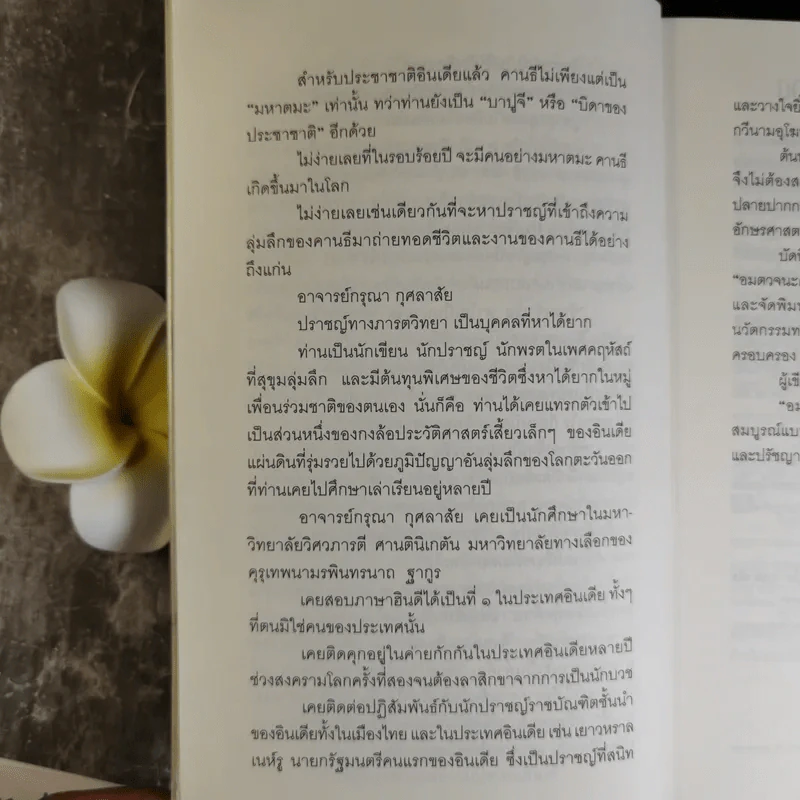 สำหรับประชาชาติอินเดียแล้ว คานธีไม่เพียงแต่เป็น
“มหาตมะ” เท่านั้น ทว่าท่านยังเป็น “บาปูจี” หรือ “บิดาของ
ประชาชาติ” อีกด้วย
ไม่ง่ายเลยที่ในรอบร้อยปี จะมีคนอย่างมหาตมะ คานธี
เกิดขึ้นมาในโลก
ไม่ง่ายเลยเช่นเดียวกันที่จะหาปราชญ์ที่เข้าถึงความ
ลุ่มลึกของคานธีมาถ่ายทอดชีวิตและงานของคานธีได้อย่าง
ถึงแก่น
อาจารย์กรุณา กุศลาสัย
ปราชญ์ทางภารตวิทยา เป็นบุคคลที่หาได้ยาก
ท่านเป็นนักเขียน นักปราชญ์ นักพรตในเพศคฤหัสถ์
ที่สุขุมลุ่มลึก และมีต้นทุนพิเศษของชีวิตซึ่งหาได้ยากในหมู่
เพื่อนร่วมชาติของตนเอง นั่นก็คือ ท่านได้เคยแทรกตัวเข้าไป
เป็นส่วนหนึ่งของกงล้อประวัติศาสตร์เสี้ยวเล็กๆ ของอินเดีย
แผ่นดินที่รุ่มรวยไปด้วยภูมิปัญญาอันลุ่มลึกของโลกตะวันออก
ที่ท่านเคยไปศึกษาเล่าเรียนอยู่หลายปี
อาจารย์กรุณา กุศลาสัย เคยเป็นนักศึกษาในมหา-
วิทยาลัยวิศวภารตี ศานตินิเกตัน มหาวิทยาลัยทางเลือกของ
คุรุเทพนามรพินทรนาถ ฐากูร
เคยสอบภาษาฮินดีได้เป็นที่ ๑ ในประเทศอินเดีย ทั้งๆ
ที่ตนมิใช่คนของประเทศนั้น
เคยติดคุกอยู่ในค่ายกักกันในประเทศอินเดียหลายปี
ช่วงสงครามโลกครั้งที่สองจนต้องลาสิกขาจากการเป็นนักบวช
เคยติดต่อปฏิสัมพันธ์กับนักปราชญ์ราชบัณฑิตชั้นนำ
ของอินเดียทั้งในเมืองไทย และในประเทศอินเดีย เช่น เยาวหราล
เนห์รู นายกรัฐมนตรีคนแรกของอินเดีย ซึ่งเป็นปราชญ์ที่สนิท
และวางใจยิ่
กวีนามอุโฆ
ต้นท
จึงไม่ต้องส
ปลายปากก
อักษรศาสต
บัดนี้
“อมตวจนะ
และจัดพิมพ
นวัตกรรมท
ครอบครอง
ผู้เขี
“อม
สมบูรณ์แบ
และปรัชญา